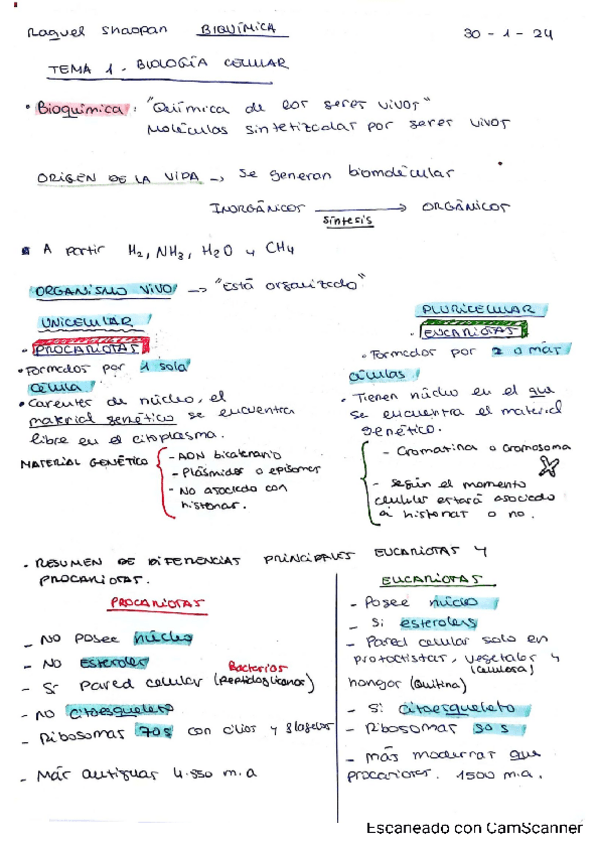 Raquel Shaopan BIQUÍMICA 30 - 1 - 24
TEMA 1 - BIOLOGÍA CELULAR
• Bioquímica: "Química de los seres vivos"
Moléculas sintetizadas por seres vivos
ORIGEN DE LA VIDA → Se generan biomoléculas
INORGÁNICOS → ORGÁNICOS
síntesis
A partir H2, NH3, H2O y CH4
ORGANISMO VIVO → "Está organizado"
UNICELULAR
• PROCARIOTAS
• Formados por 1 sola
célula
• Carentes de núcleo, el
material genético se encuentra
libre en el citoplasma.
MATERIAL GENÉTICO
- ADN bicatenario
- Plásmidos o episomas
- No asociado con
histonas.
PLURICELULAR
• EUCARIOTAS
• Formados por 2 o más
células
• Tienen núcleo en el que
se encuentra el material
genético.
- Cromatina o cromosoma
- según el momento
celular estará asociado
a histonas o no.
• RESUMEN DE DIFERENCIAS PRINCIPALES EUCARIOTAS Y
PROCARIOTAS.
PROCARIOTAS
- No posee núcleo
- No esteroles
- Sí pared celular (Peptidoglicanos)
Bacterias
- No citoesqueleto
- Ribosomas 70s con cilios y flagelos
- Más antiguas 4.550 m.a
EUCARIOTAS
- Posee núcleo
- Sí esteroles
- Pared celular solo en
protoctistas, vegetales y
(celulosa)
hongos (Quitina)
- Sí citoesqueleto
- Ribosomas 80 s
- más modernas que
procariotas. 1500 m.a.
Escaneado con CamScanner